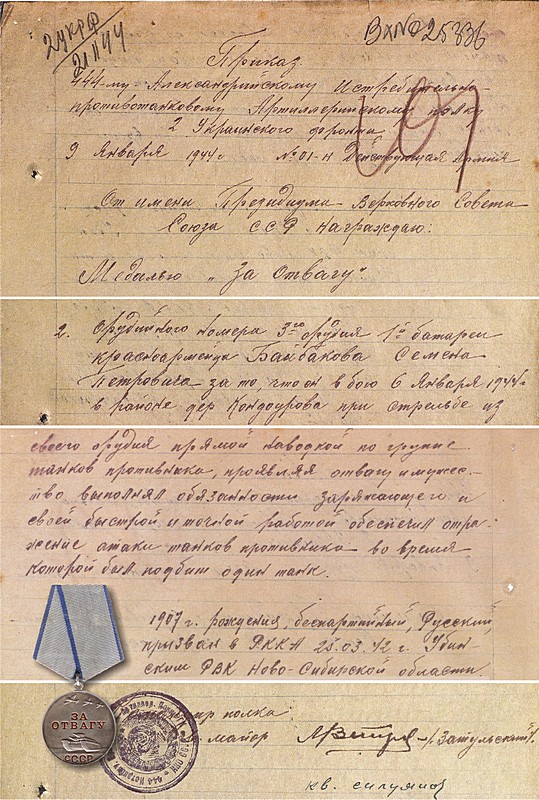 2 УКРФ
21 1 44
Вх№ 25336
Приказ
444-му Александрийскому Истребительно-
противотанковому Артиллерийскому полку
2 Украинского фронта
9 Января 1944 г №01-н Действующая Армия
От имени Президиума Верховного Совета
Союза ССР награждаю:
Медалью „За отвагу".
2. Орудийного номера 3го орудия 1й батареи
красноармейца Байбакова Семена
Петровича за то, что он в бою 6 Января 1944 г
в районе дер Кандоурова при стрельбе из
своего орудия прямой наводкой по группе
танков противника, проявляя отвагу и мужес-
тво, выполнял обязанности заряжающего и
своей быстрой и точной работой обеспечил отра-
жение атаки танков противника во время
которой был подбит один танк.
1907 г. рождения, беспартийный, Русский,
призван в РККА 25.03.42 г. Убин-
ским РВК Ново-Сибирской области.
ЗА
ОТВАГУ
СССР
полка:
майор /Затульский/